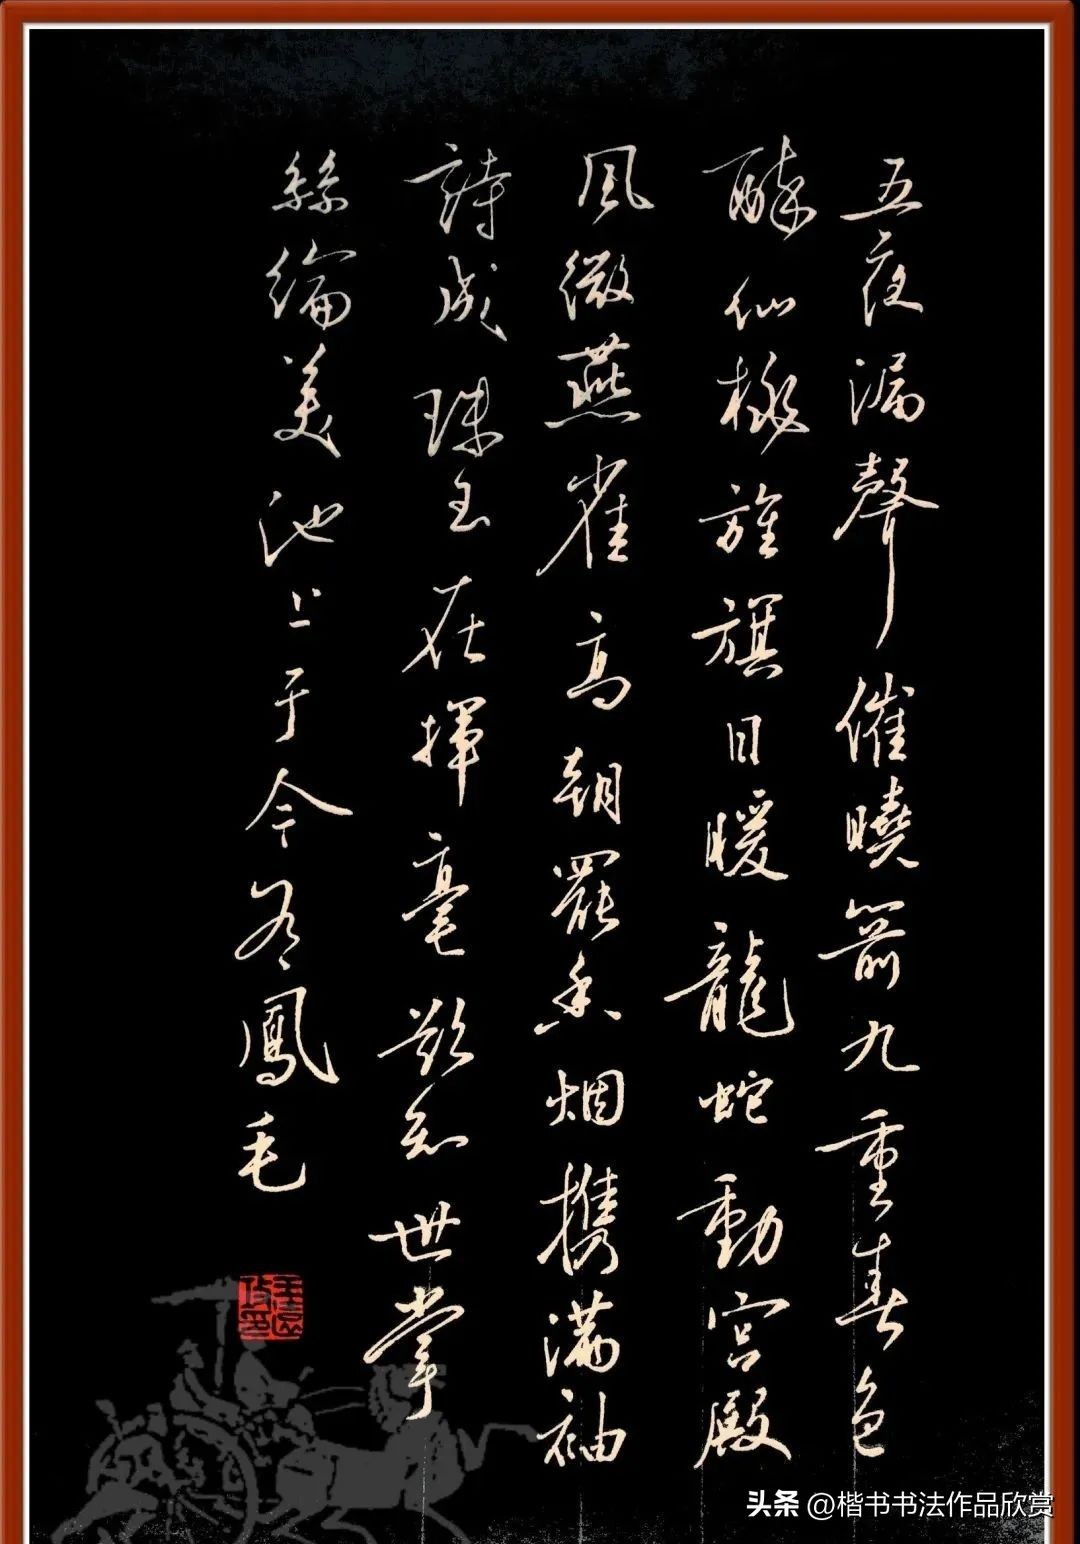 五夜漏聲催曉箭九重春色
醉仙桃旌旗日暖龍蛇動宮殿
風微燕雀高朝罷香烟携滿袖
詩成珠玉在揮毫欲知世掌
絲綸美池上于今有鳳毛
头条 @楷书书法作品欣赏